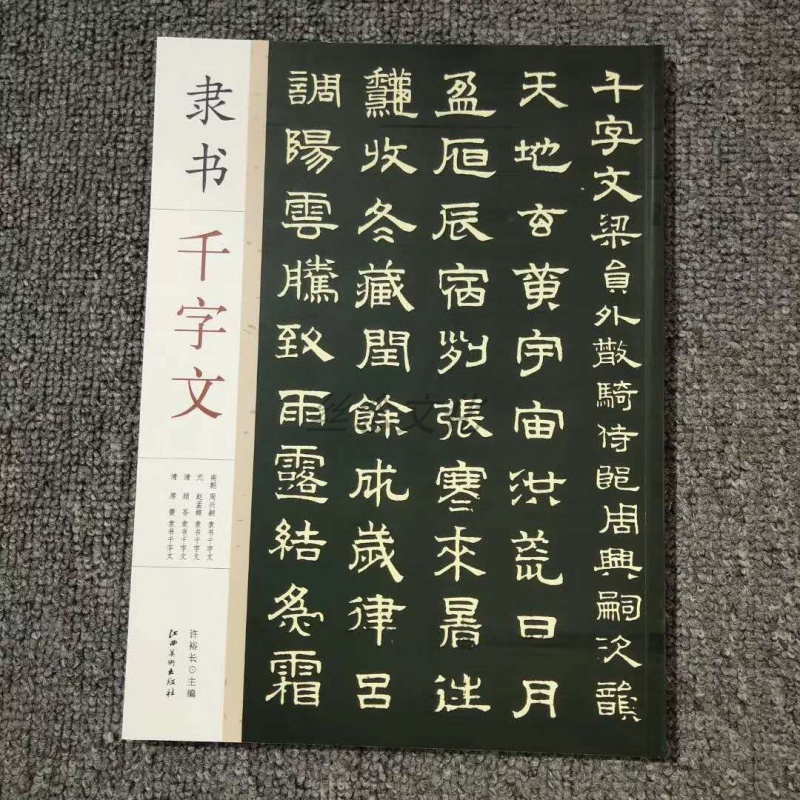 隶书
千字文
南朝 周兴嗣 隶书千字文
元 赵孟頫 隶书千字文
清 顾苓 隶书千字文
清 席夔 隶书千字文
许裕长⊙主编
江西美術出版社
千字文梁員外散騎侍郎周興嗣次韻
天地玄黄宇宙洪荒日月
盈昃辰宿列張寒來暑往
龝收冬藏閏餘成歲律吕
調陽雲騰致雨露結為霜